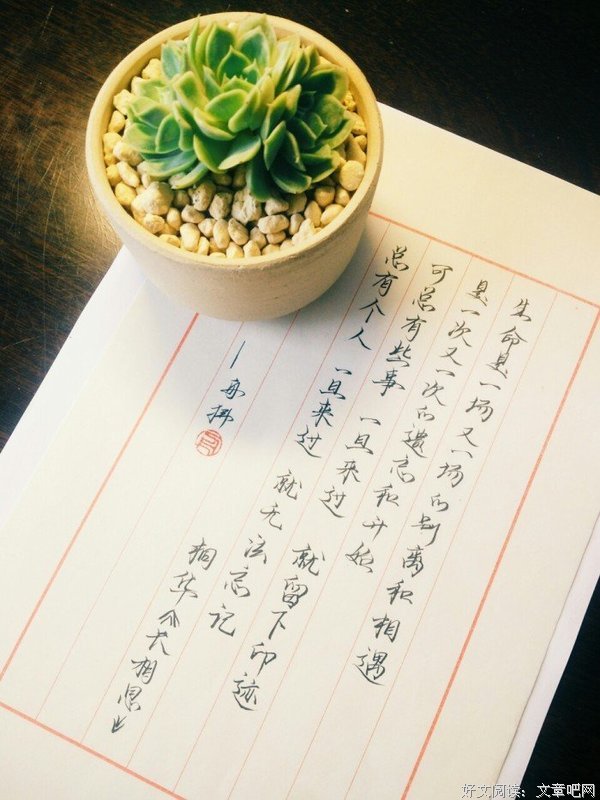 生命是一场又一场的别离和相遇
是一次又一次的遗忘和开始
可总有些事 一旦来过 就留下印迹
总有个人 一旦来过 就无法忘记
桐华《长相思》
好文阅读：文章吧网